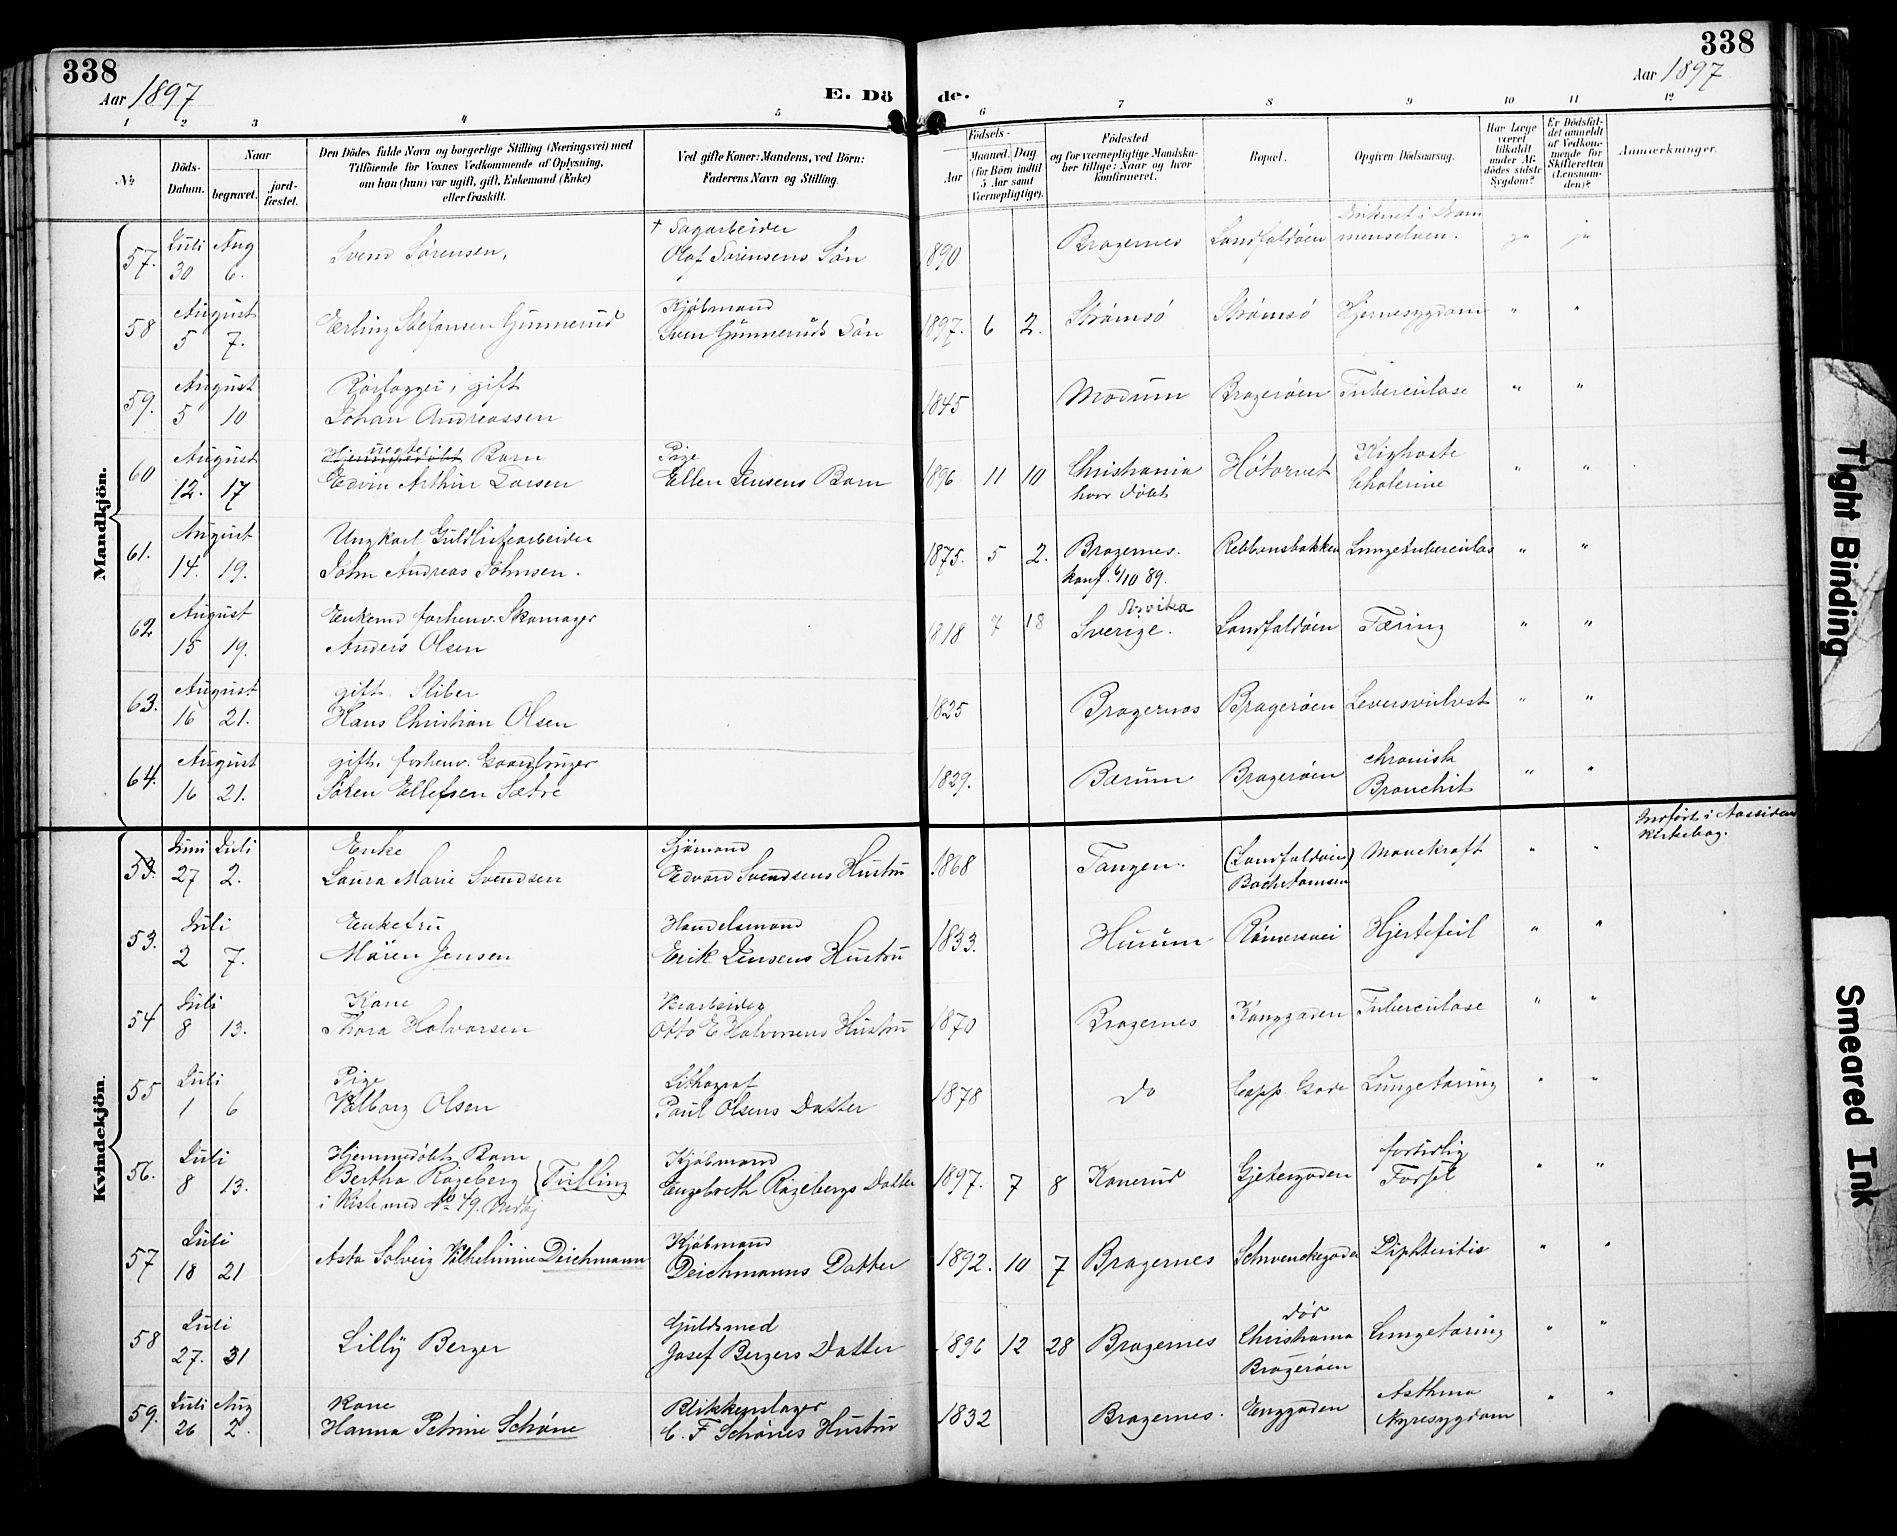 338
Aar 1897
E. Döde.
338
Aar 1897
1 2 3 4 5 6 7 8 9 10 11 12
№
Döds-Datum.
Naar
begravet.
jord-fæstet.
Den Dödes fulde Navn og borgerlige Stilling (Næringsvei) med
Tilföiende for Voxnes Vedkommende af Oplysning,
om han (hun) var ugift, gift, Enkemand (Enke)
eller fraskilt.
Ved gifte Koner: Mandens, ved Börn:
Faderens Navn og Stilling.
Födsels-
Aar
Maaned. Dag
(for Börn indtil
5 Aar samt
Værnepligtige).
Födested
og for værnepligtige Mandska-
ber tillige: Naar og hvor
konfirmeret.
Bopæl.
Opgiven Dödsaarsag.
Har Læge
været
tilkaldt
under Af-
dödes sidste
Sygdom?
Er Dödsfal-
det anmeldt
af Vedkom-
mende for
Skifteretten
(Lensman-
den)?
Anmærkninger.
Mandkjön.
57. Juli 30 Aug 6. Svend Sørensen, † Sagarbeider Olaf Sørensens Søn 1890 Bragernes Landfaldøen Druknet i Dram menselven. ja ja
58 August 5 7. Erling Stefansen Gunnerud Kjøbmand Sven Gunneruds Søn 1897. 6 2. Strømsø Strømsø Hjernesygdom " "
59. August 5 10 Rørlægger, gift Johan Andreassen 1845 Modum Bragerøen Tuberculose " "
60 August 12. 17 uægte Barn Edvin Arthur Larsen Pige Ellen Jensens Barn 1896 11 10 Christiania hvor døbt Høtorvet Kighoste Cholerine " "
61. August 14. 19. Ungkarl Guldlistearbeider John Andreas Johnsen. 1875. 5 2. Bragernes. konf. 6/10 89. Rebbansbakken Lungetuberculos " "
62 August 15 19. Enkemd forhenv. Skomager Anders Olsen 1818 7 18 Arvika Sverige. Landfaldøen Tæring " "
63. August 16 21. gift. Sliber Hans Christian Olsen 1825 Bragernes Bragerøen Leversvulvst " "
64. August 16 21. gift. forhenv. Gaardbruger Søren Ellefsen Sætre 1829. Bærum Bragerøen chronisk Bronchit " "
Kvindekjön.
53. Juni 27 Juli 2. Enke Laura Marie Svendsen Sjømand Edvard Svendsens Hustru 1868 Tangen. (Landfaldøen) Mavekræft " " Indført i Aassidens Kirkebog.
53. Juli 2 7. Enkefru Maren Jensen Handelsmand Erik Jensens Hustru 1833. Hurum Rømersvei Hjertefeil " "
54 Juli 8 13. Kone Thora Halvorsen Otto E Halvorsens Hustru 1870 Bragernes Konggaden Tuberculose " "
55 Juli 1 6 Pige Valborg Olsen Lithograf Paul Olsens Datter 1878 do Capp. Gade Lungetæring " "
56. Juli 8 13. Hjemmedøbt Barn Bertha Rageberg (Tvilling i Kiste med No 49. Kjøbmand Engebreth Ragebergs Datter 1897. 7 8 Konerud Gjetergaden fortidlig Forsel " "
57 Juli 18 21 Asta Solveig Vilhelmine Deichmann Kjøbmand Deichmanns Datter 1892. 10 7 Bragernes Schwenckegaden Diphteritis " "
58 Juli 27. 31 Lilly Berger Guldsmed Josef Bergers Datter 1896 12 28 Bragernes død Christiania Bragerøen Lungetæring " "
59. Juli 26 Aug 2. Kone Hanna Petrine Schøne Blikkenslager C. F Schønes Hustru 1832 Bragernes. Enggaden Asthma Nyresygdom " "
Tight Binding
Smeared Ink